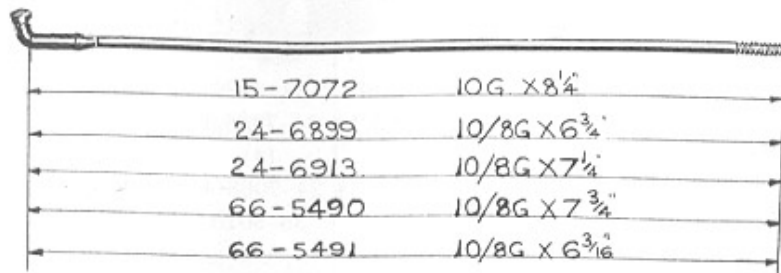 15-7072 10G. X 8 1/4"
24-6899 10/8G X 6 3/4"
24-6913 10/8G X 7 1/4"
66-5490 10/8G X 7 3/4"
66-5491 10/8G X 6 3/16"